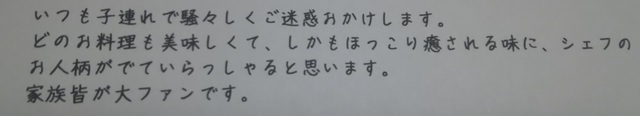 いつも子連れで騒々しくご迷惑おかけします。
どのお料理も美味しくて、しかもほっこり癒される味に、シェフの
お人柄がでていらっしゃると思います。
家族皆が大ファンです。